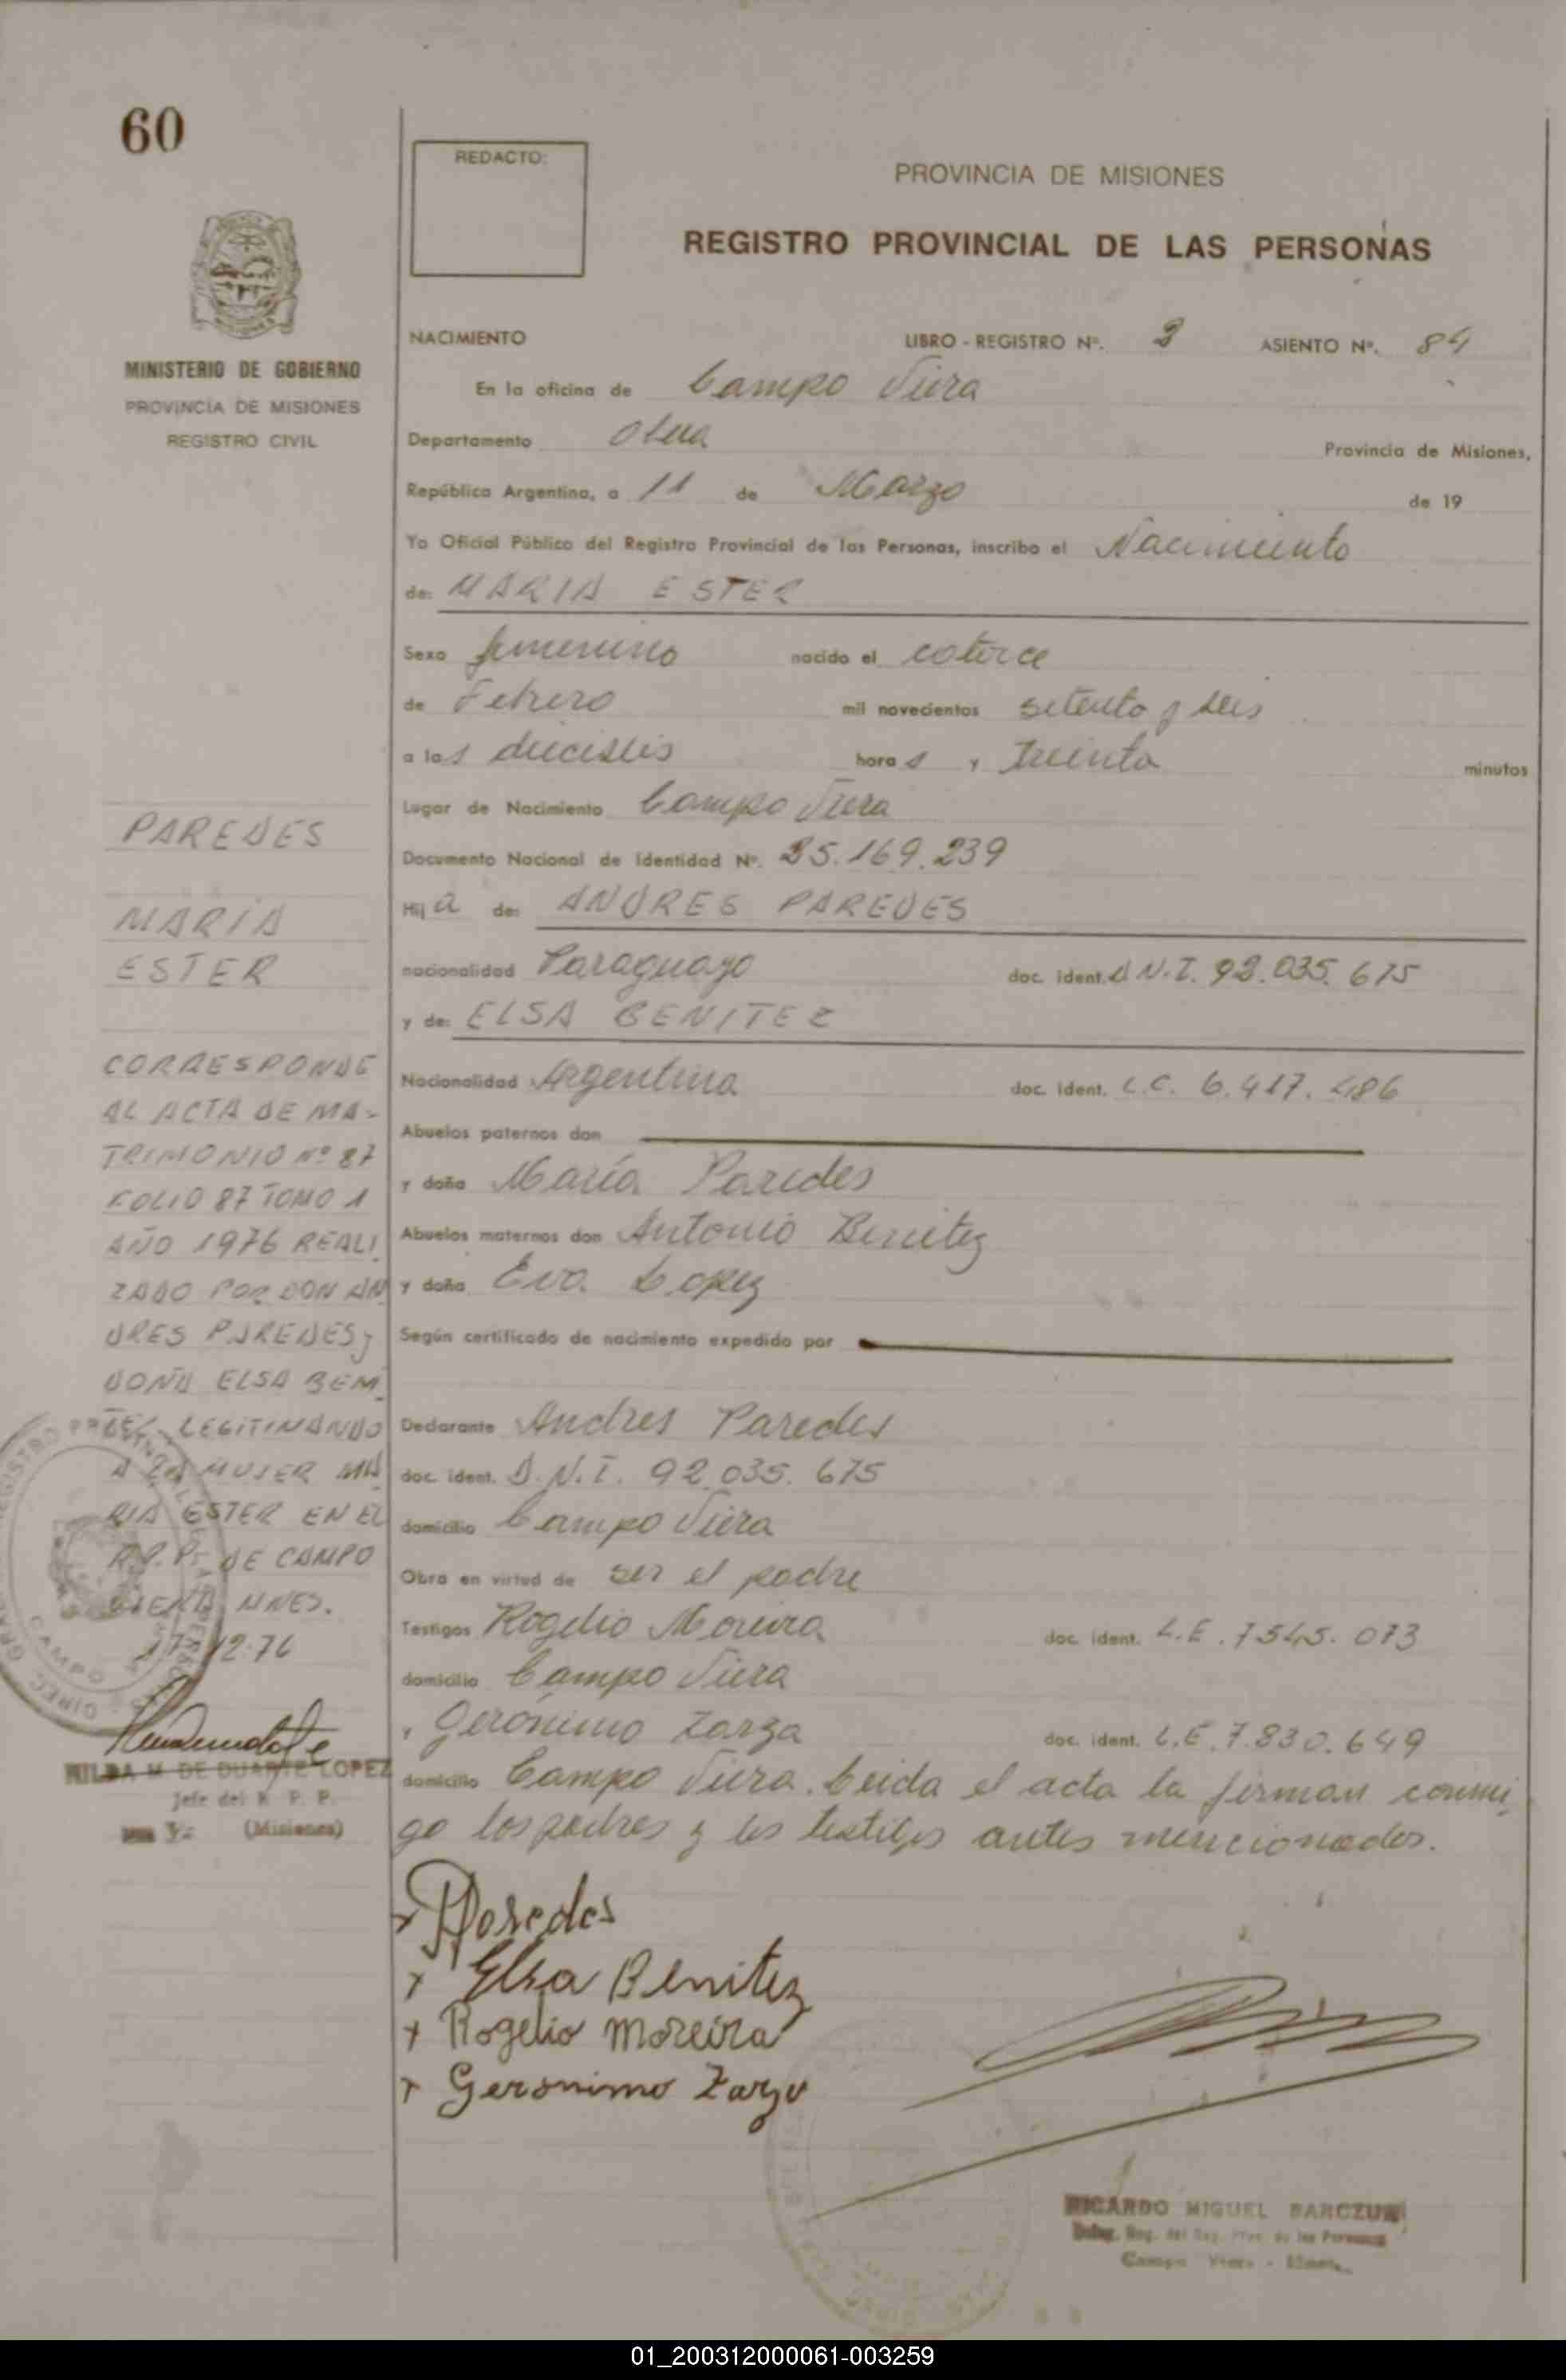 60
REDACTO:
PROVINCIA DE MISIONES
REGISTRO PROVINCIAL DE LAS PERSONAS
MINISTERIO DE GOBIERNO
PROVINCIA DE MISIONES
REGISTRO CIVIL
NACIMIENTO LIBRO - REGISTRO Nº. ASIENTO Nº. 84
En la oficina de Campo Viera
Departamento Obera Provincia de Misiones,
República Argentina, a 11 de Marzo de 19
Yo Oficial Público del Registro Provincial de las Personas, inscribo el Nacimiento
de: MARIA ESTER
Sexo femenino nacido el catorce
de Febrero mil novecientos setenta y seis
a las dieciseis horas y treinta minutos
Lugar de Nacimiento Campo Viera
Documento Nacional de Identidad Nº. 25.169.239
Hija de: ANDRES PAREDES
nacionalidad Paraguayo doc. ident. D.N.I. 92.035.675
y de: ELSA BENITEZ
Nacionalidad Argentina doc. ident. L.C. 6.417.486
Abuelos paternos don
y doña María Paredes
Abuelos maternos don Antonio Benitez
y doña Eva Lopez
Según certificado de nacimiento expedido por
Declarante Andres Paredes
doc. ident. D.N.I. 92.035.675
domicilio Campo Viera
Obra en virtud de ser el padre
Testigos Rogelio Moreira doc. ident. L.E. 7.545.073
domicilio Campo Viera
y Gerónimo Zarza doc. ident. L.E. 7.830.649
domicilio Campo Viera. Leida el acta la firman conmi
go los padres y los testigos antes mencionados.
PAREDES
MARIA
ESTER
CORRESPONDE
AL ACTA DE MA-
TRIMONIO Nº 87
FOLIO 87 TOMO 1
AÑO 1976 REALI
ZADO POR DON AN
DRES PAREDES y
DOÑA ELSA BENI
TEZ LEGITIMANDO
A LA MUJER MA
RIA ESTER EN EL
R.P.P. DE CAMPO
VIERA MNES.
17-12-76
HILDA M. DE DUARTE LOPEZ
Jefe del R. P. P.
(Misiones)
Paredes
Elsa Benitez
Rogelio Moreira
Geronimo Zarza
RICARDO MIGUEL BARCZUK
Deleg. Reg. del Reg. Prov. de las Personas
Campo Viera - Mnes.
01_200312000061-003259